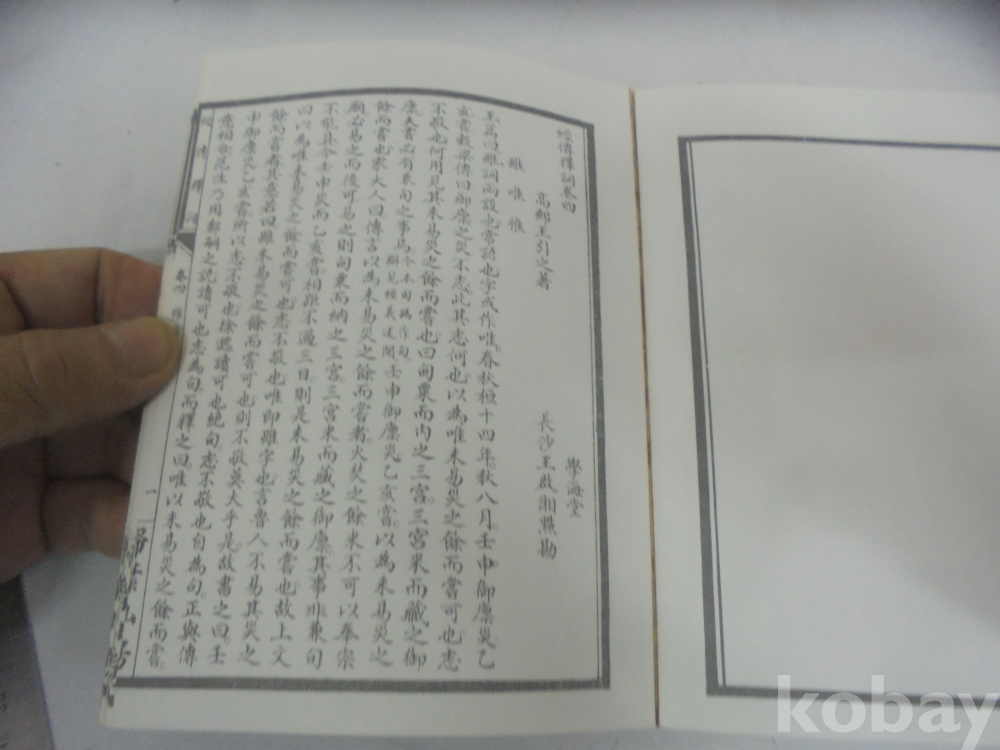 經傳釋詞卷四
學海堂
高郵王引之著
長沙王啟湘點勘
雖 唯 惟
玉篇曰雖詞兩設也常語也字或作唯春秋桓十四年秋八月壬申御廩災乙
亥嘗穀梁傳曰御廩之災不志此其志何也以為唯未易災之餘而嘗可也志
不敬也何用見其未易災之餘而嘗也曰甸粟而內之三宮三宮米而藏之御
廩夫嘗必有兼甸之事焉今本甸譌作旬辯見經義述聞壬申御廩災乙亥嘗以為未易災之
餘而嘗也家大人曰傳言以為未易災之餘而嘗者火焚之餘米不可以奉宗
廟必易之而後可易之則甸粟而納之三宮三宮米而藏之御廩其事非兼旬
不能具今壬申災而乙亥嘗相距不過三日則是未易災之餘而嘗也故上文
曰以為唯未易災之餘而嘗可也志不敬也唯即雖字也言魯人不易其災之
餘而嘗者其意若曰雖未易災之餘而嘗可也則不敬莫大乎是故書之曰壬
申御廩災乙亥嘗所以志不敬也徐邈讀可也絕句志不敬也自為句正與傳
意相合范注乃用鄭嗣之說讀可也志為句而釋之曰唯以未易災之餘而嘗
經傳釋詞
卷四
一
掃葉山房
kobay